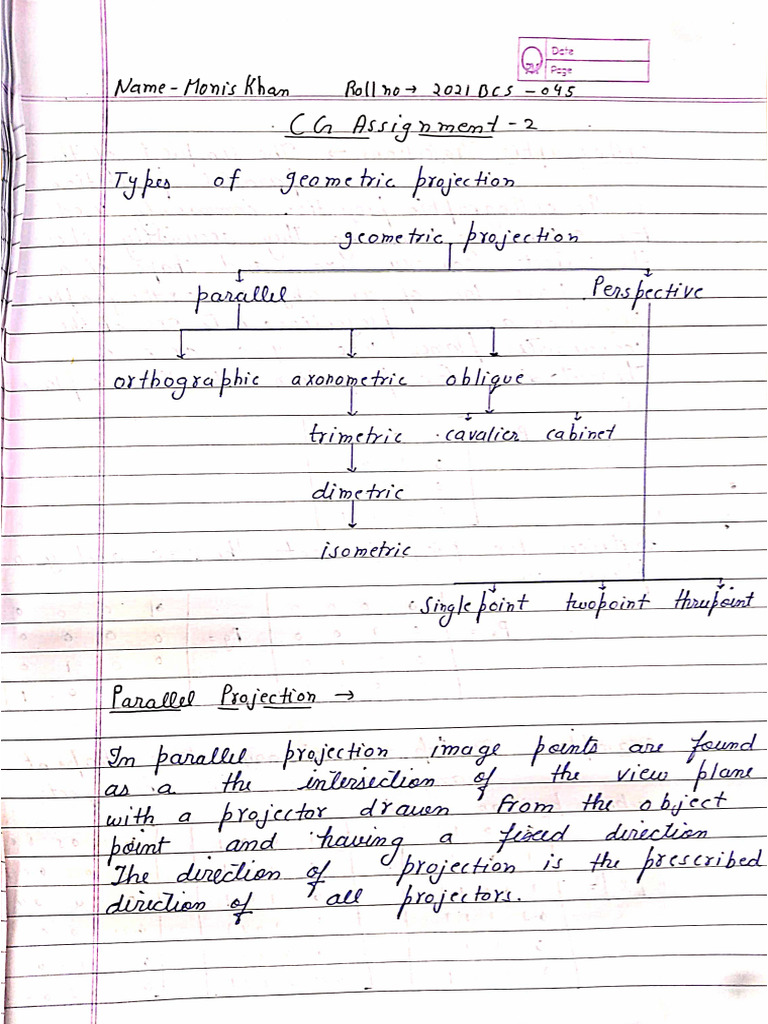 Date
Page
Name - Monis Khan Roll no → 2021 BCS - 045
CG Assignment - 2
Types of geometric projection
geometric projection
parallel Perspective
orthographic axonometric oblique
trimetric cavalier cabinet
dimetric
isometric
Single point twopoint threepoint
Parallel Projection →
In parallel projection image points are found
as a the intersection of the view plane
with a projector drawn from the object
point and having a fixed direction
The direction of projection is the prescribed
direction of all projectors.